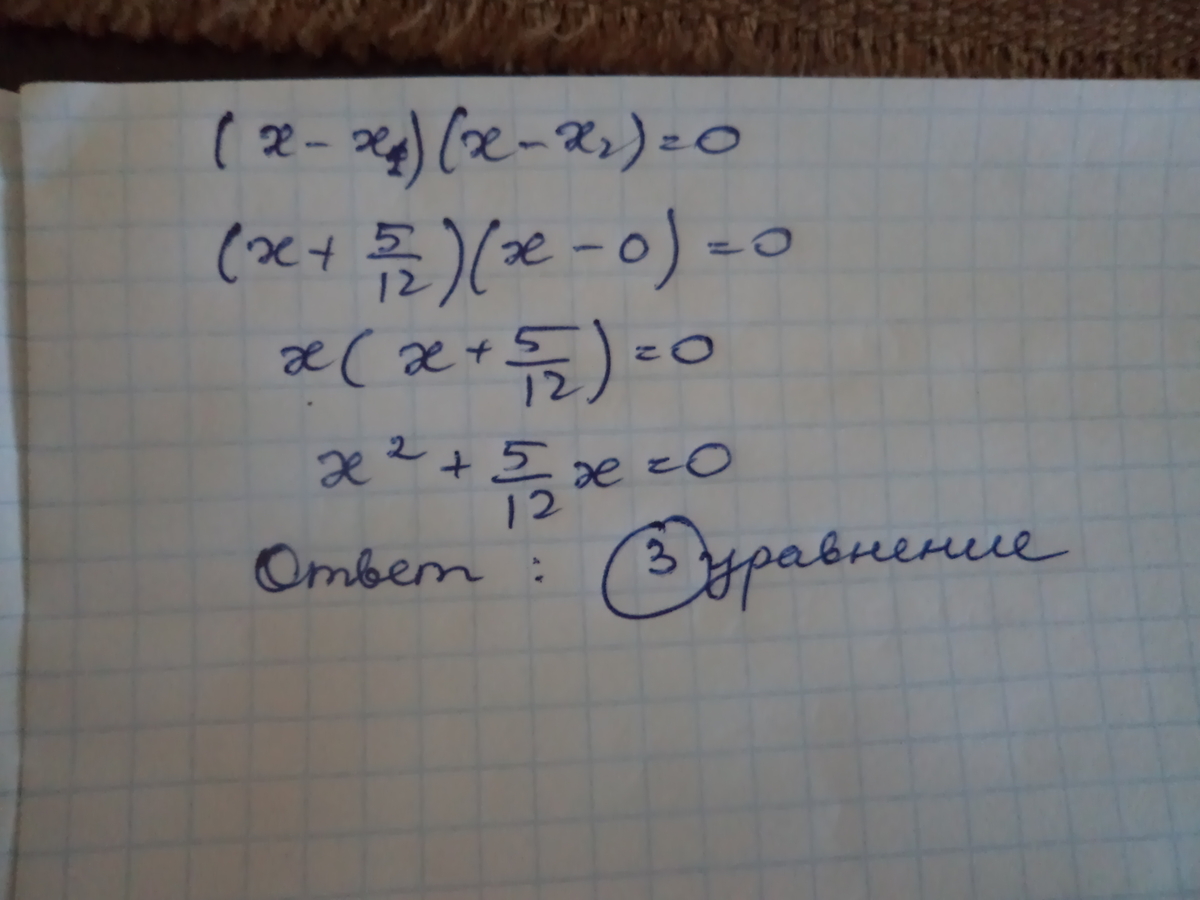 (x - x₁)(x - x₂) = 0
(x + 5/12)(x - 0) = 0
x(x + 5/12) = 0
x² + 5/12 x = 0
Ответ : 3 уравнение